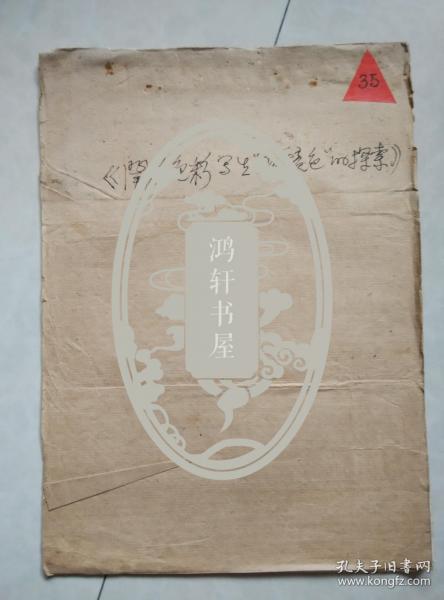 35
色彩写生 色"的探索》
鸿轩书屋
孔夫子旧书网
www.kongfz.com